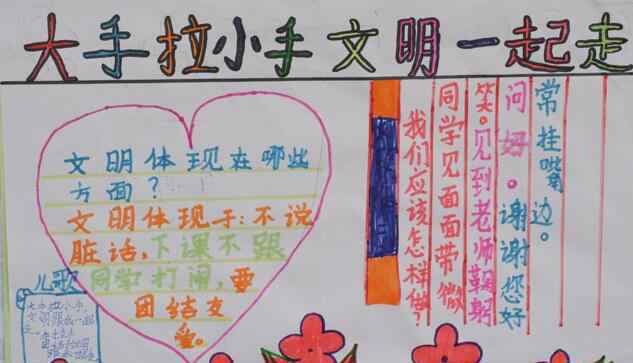 大手拉小手文明一起走
文明体现在哪些
方面？
文明体现于：不说
脏话，下课不跟
同学打闹，要
团结友
爱。
儿歌
大手拉小手，
我们应该怎样做？
同学见面面带微
笑。见到老师鞠躬
问好。谢谢您好
常挂嘴边。